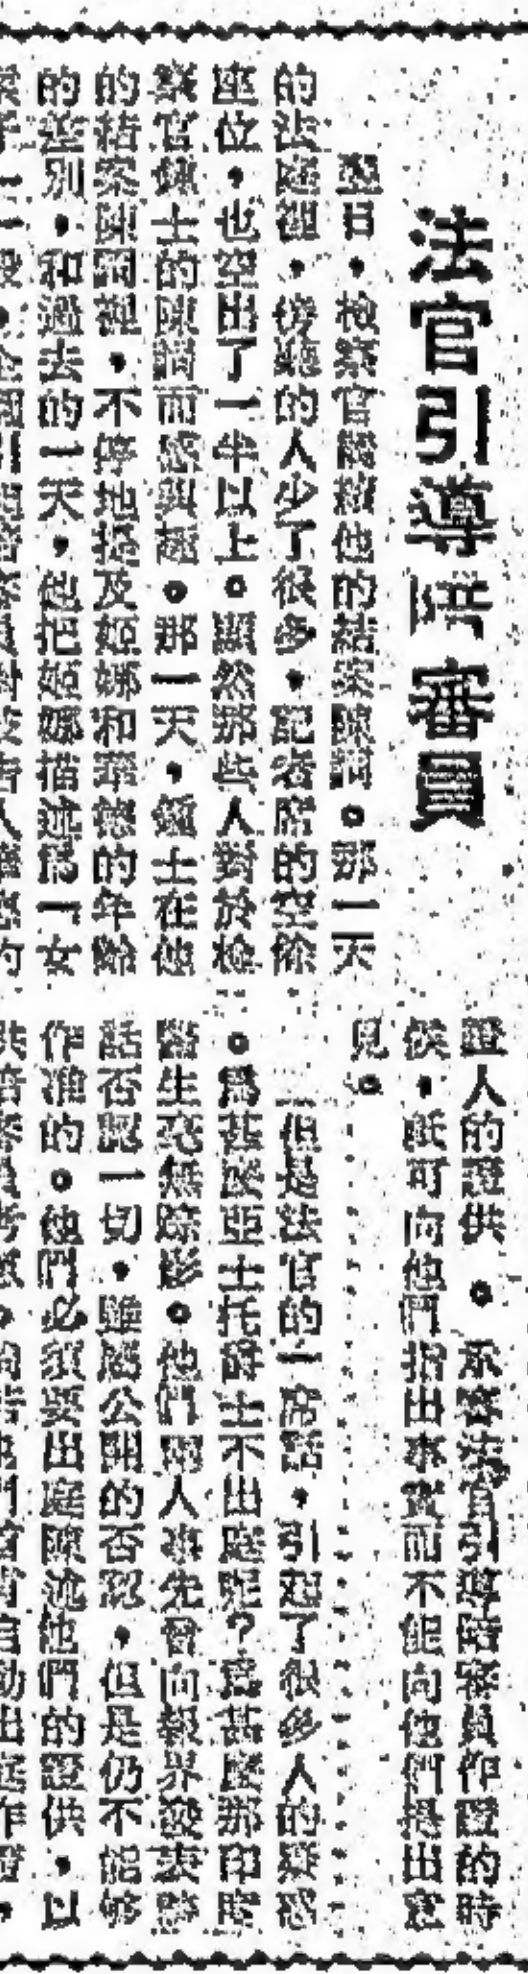 法官引導陪審員
翌日，檢察官繼續他的結案陳詞。那一天
的法庭裡，後聽的人少了很多，記者席的空餘
座位，也空出了一半以上。顯然那些人對於檢
察官鍾士的陳詞而感興趣。那一天，鍾士在他
的結案陳詞裡，不停地提及姬娜和華德的年齡
的差別，和過去的一天，他把姬娜描述爲一女
證人的證供。承審法官引導陪審員作證的時
候，祇可向他們指出事實而不能向他們提出意
見。
但是法官的一席話，引起了很多人的疑惑
。爲甚麼亞士托爵士不出庭呢？爲甚麼那印度
醫生毫無踪影。他們兩人事先曾向報界發表談
話否認一切，雖屬公開的否認，但是仍不能够
作准的。他們必須要出庭陳述他們的證供，以